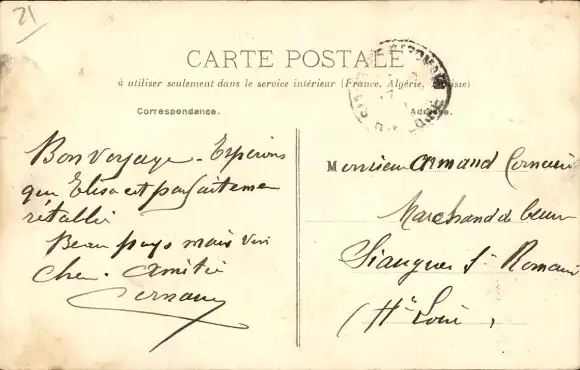 21
CARTE POSTALE
à utiliser seulement dans le service intérieur (France, Algérie, Tunisie)
Correspondance. Adresse.
Bon voyage - Espérons
que Elisa et parfaitemen
rétablie
Beau pays mais vin
cher. Amitié
Monsieur Armand Cornaire
Marchand de beurre
Siaugues St Romain
(Hte Loire,